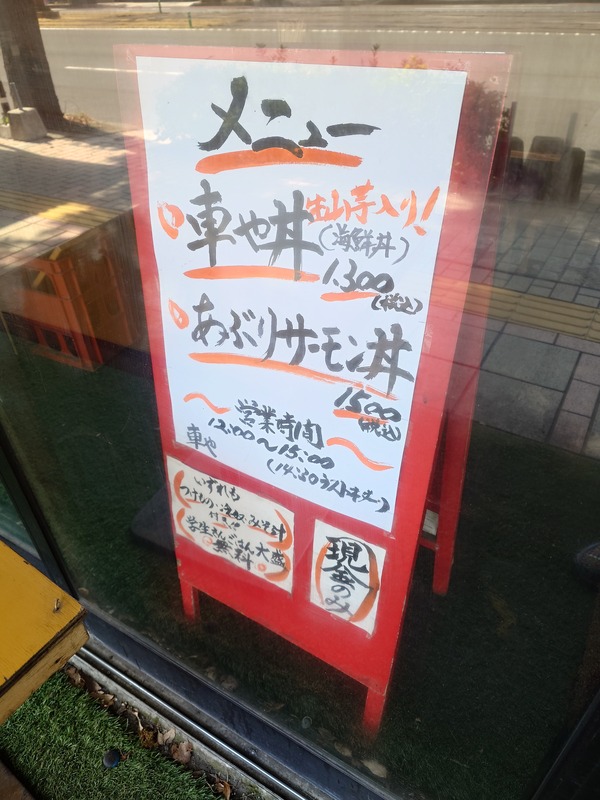 メニュー
車や丼
生山芋入り!
(海鮮丼)
1.300
(税込)
あぶりサーモン丼
1500
(税込)
営業時間
12:00〜15:00
(14:30ラストオーダー)
車や
いずれも
つけもの・冷奴・みそ汁
付きます
学生さんごはん大盛
無料
現金のみ